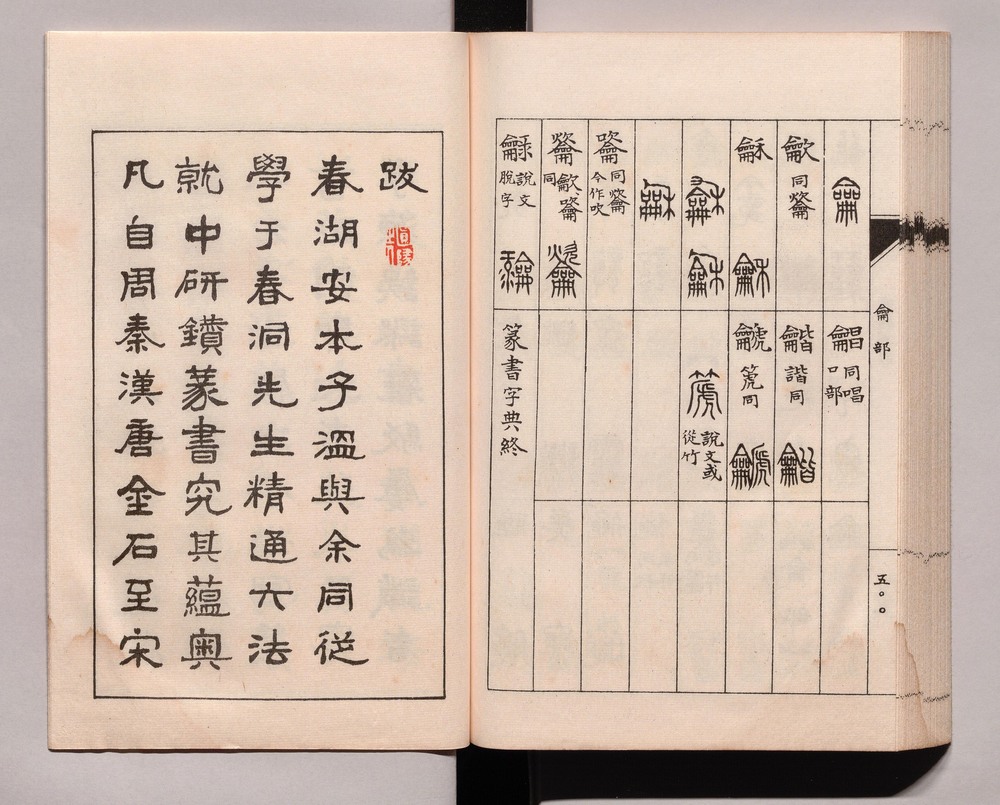 龠部
五〇〇
龠
同唱
口部
龡
同
龤
諧同
龤
龢
龢
同
龢
龢
說文或
從竹
龢
同
今作吹
龡
同
說文
脫字
篆書字典終
跋
春湖安本子溫與余同從
學于春洞先生精通六法
就中研鑽篆書究其蘊奧
凡自周秦漢唐金石至宋